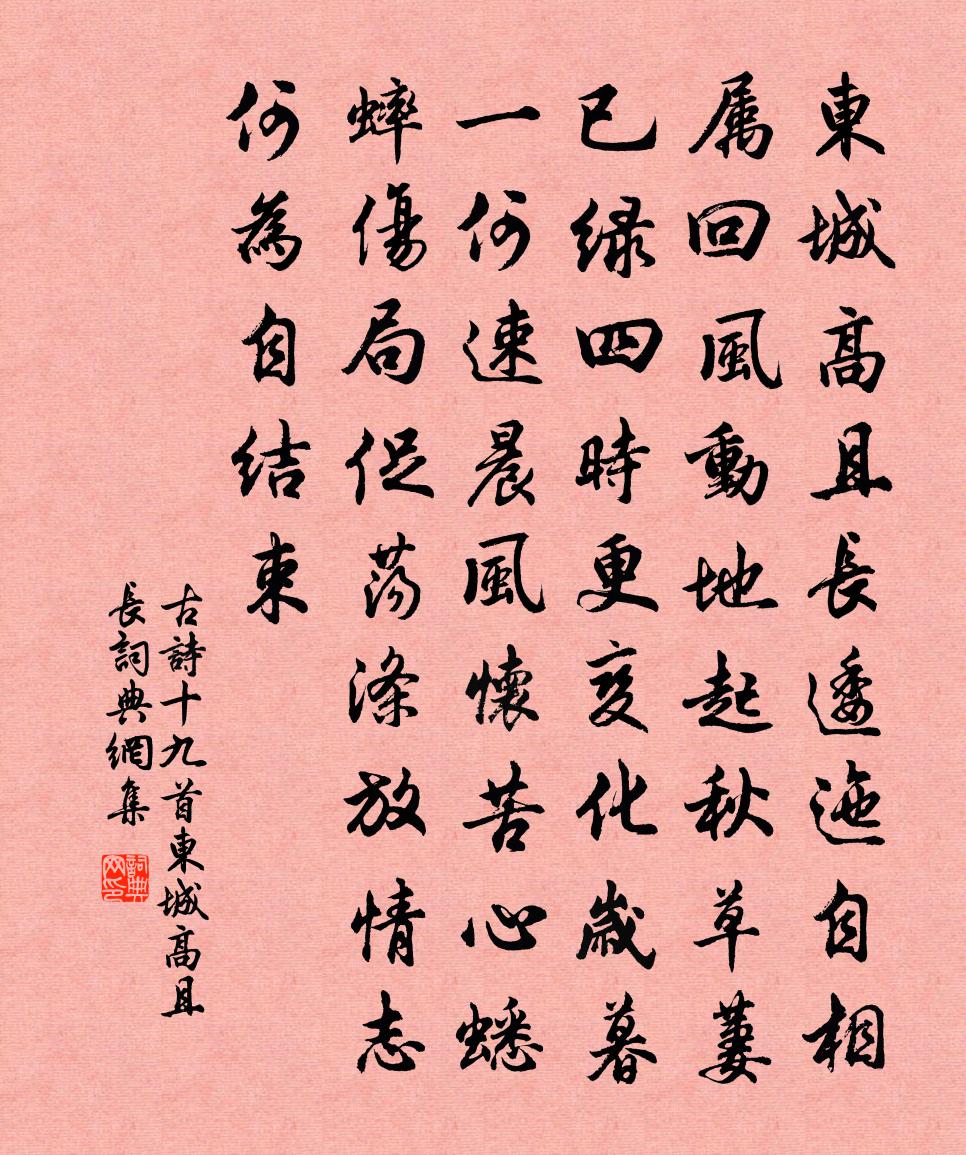 東城高且長逶迤自相
属回風動地起秋草萋
已绿四時更变化歲暮
一何速晨風懷苦心蟋
蟀傷局促荡涤放情志
何為自结束
古詩十九首東城高且
長詞典網集
詞典网印